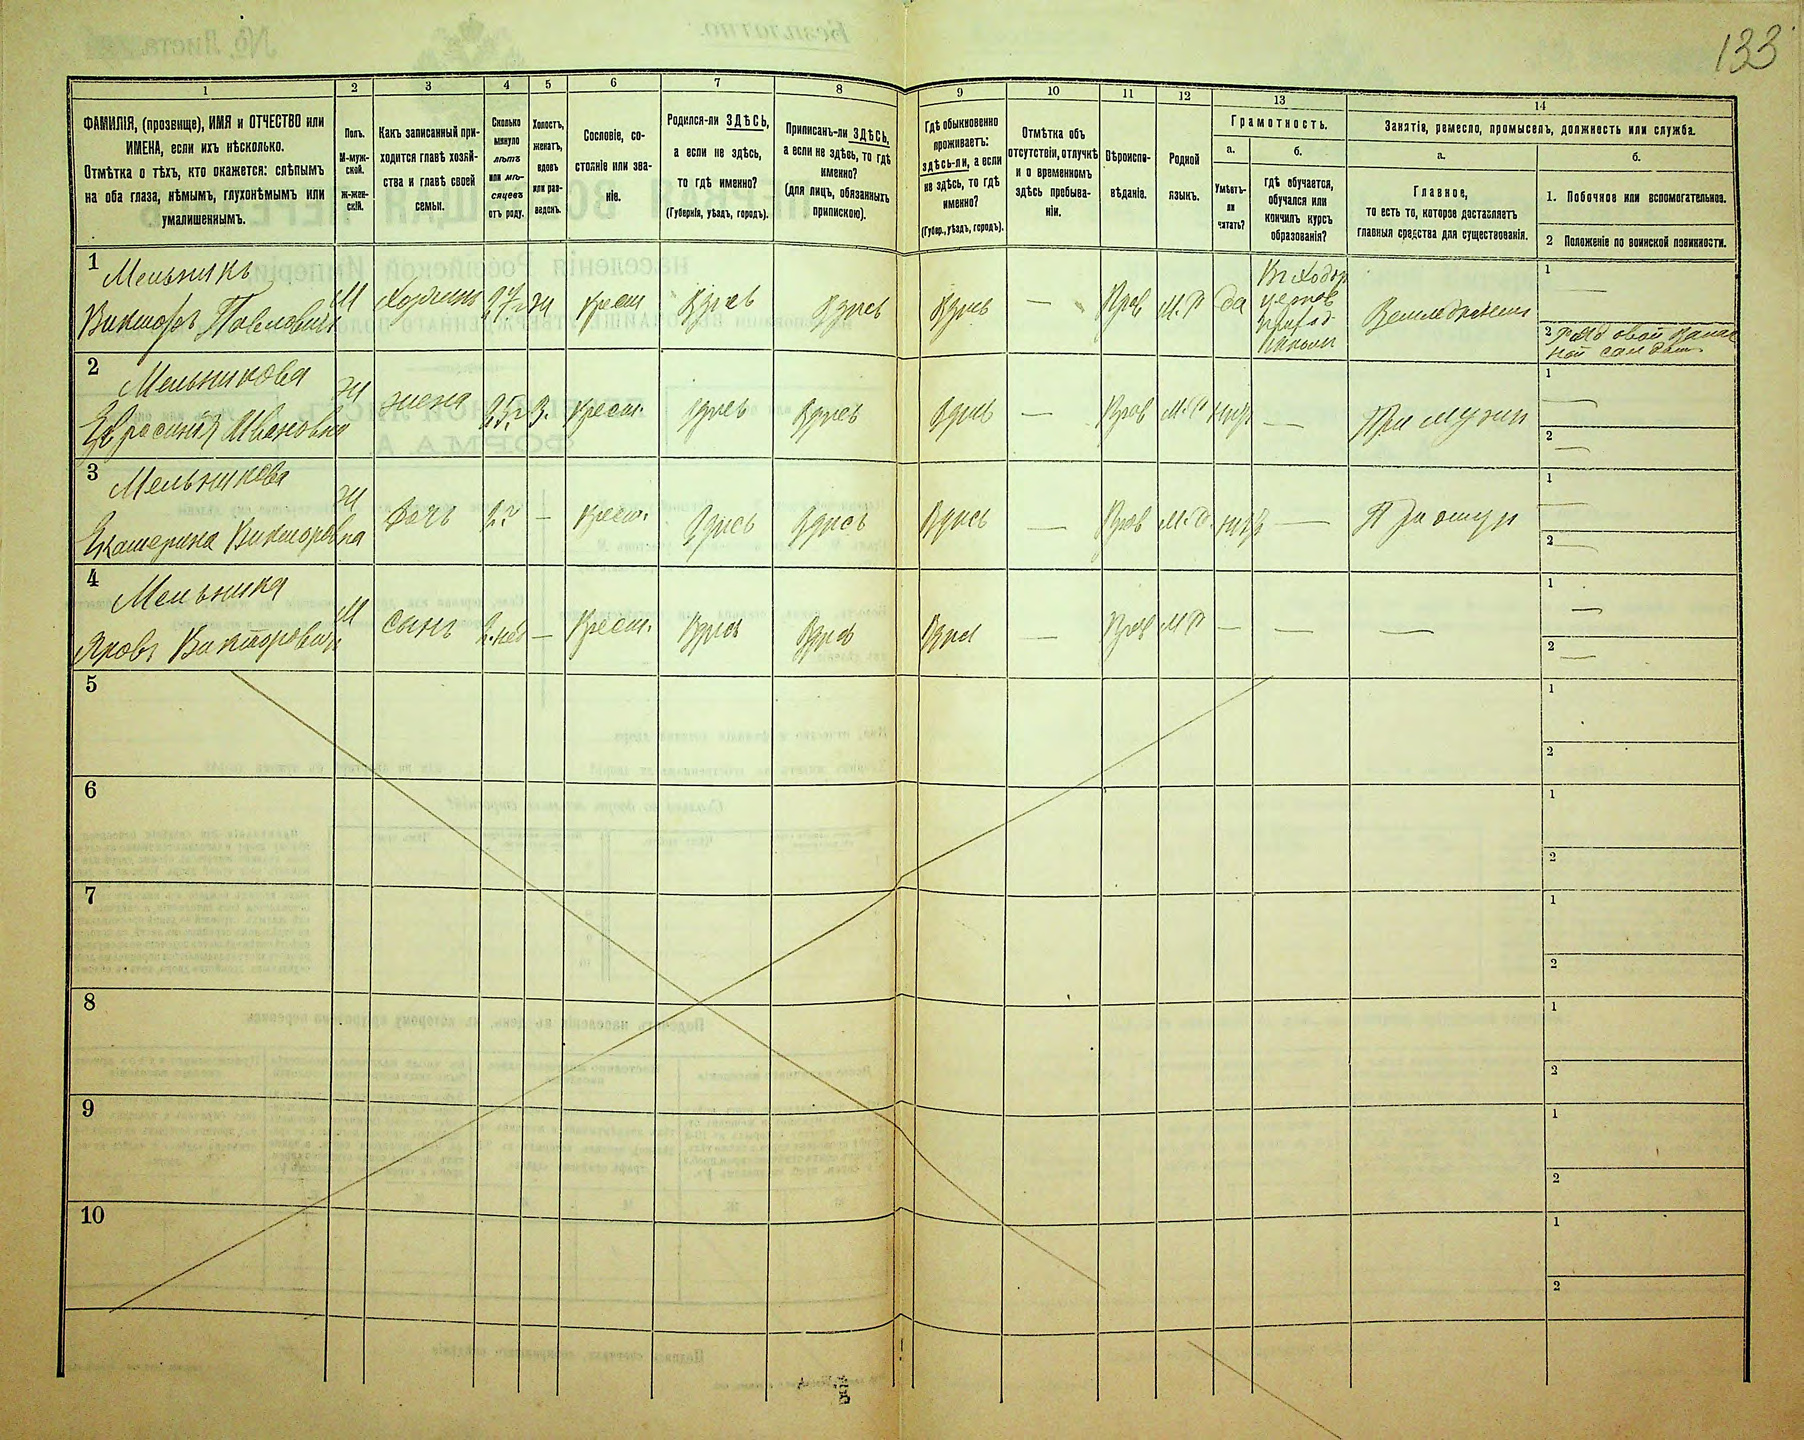 133
1
2
3
4
5
6
7
8
9
10
11
12
13
14
ФАМИЛІЯ, (прозвище), ИМЯ и ОТЧЕСТВО или
ИМЕНА, если ихъ нѣсколько.
Отмѣтка о тѣхъ, кто окажется: слѣпымъ
на оба глаза, нѣмымъ, глухонѣмымъ или
умалишеннымъ.
Полъ.
М-муж-
ской.
Ж-жен-
скій.
Какъ записанный при-
ходится главѣ хозяй-
ства и главѣ своей
семьи.
Сколько
минуло
лѣтъ
или мѣ-
сяцевъ
отъ роду.
Холостъ,
женатъ,
вдовъ
или раз-
веденъ.
Сословіе, со-
стояніе или зва-
ніе.
Родился-ли ЗДѢСЬ,
а если не здѣсь,
то гдѣ именно?
(Губернія, уѣздъ, городъ).
Приписанъ-ли ЗДѢСЬ,
а если не здѣсь, то гдѣ
именно?
(для лицъ, обязанныхъ
припискою).
Гдѣ обыкновенно
проживаетъ:
здѣсь-ли, а если
не здѣсь, то гдѣ
именно?
(Губер., уѣздъ, городъ).
Отмѣтка объ
отсутствіи, отлучкѣ
и о временномъ
здѣсь пребыва-
ніи.
Вѣроиспо-
вѣданіе.
Родной
языкъ.
Грамотность.
а.
Умѣетъ-
ли
читать?
б.
гдѣ обучается,
обучался или
кончилъ курсъ
образованія?
Занятія, ремесло, промыселъ, должность или служба.
а.
Главное,
то есть то, которое доставляетъ
главныя средства для существованія.
б.
1. Побочное или вспомогательное.
2 Положеніе по воинской повинности.
1
Мельникъ
Викторъ Павловичъ
М
Хозяинъ
27 г
ж
Крест
Здѣсь
Здѣсь
Здѣсь
—
Прав
М. Р
да
церков
приход
школы
Земледѣлецъ
1 —
2 Рядовой запас
ной солдат
2
Мельникова
Ефросинія Ивановна
ж
жена
25 г.
З.
Крест.
Здѣсь
Здѣсь
Здѣсь
—
Прав
М. Р
нѣт
—
При мужи
1 —
2 —
3
Мельникова
Екатерина Викторовна
ж
дочь
2 г
—
Крест.
Здѣсь
Здѣсь
Здѣсь
—
Прав
М. Р.
нѣт
—
При отцу
1 —
2 —
4
Мельника
Яковъ Викторовичъ
М
сынъ
2. мѣс
—
Крест.
Здѣсь
Здѣсь
Здѣсь
—
Прав
М Р
—
—
—
1 —
2 —
5
1
2
6
1
2
7
1
2
8
1
2
9
1
2
10
1
2